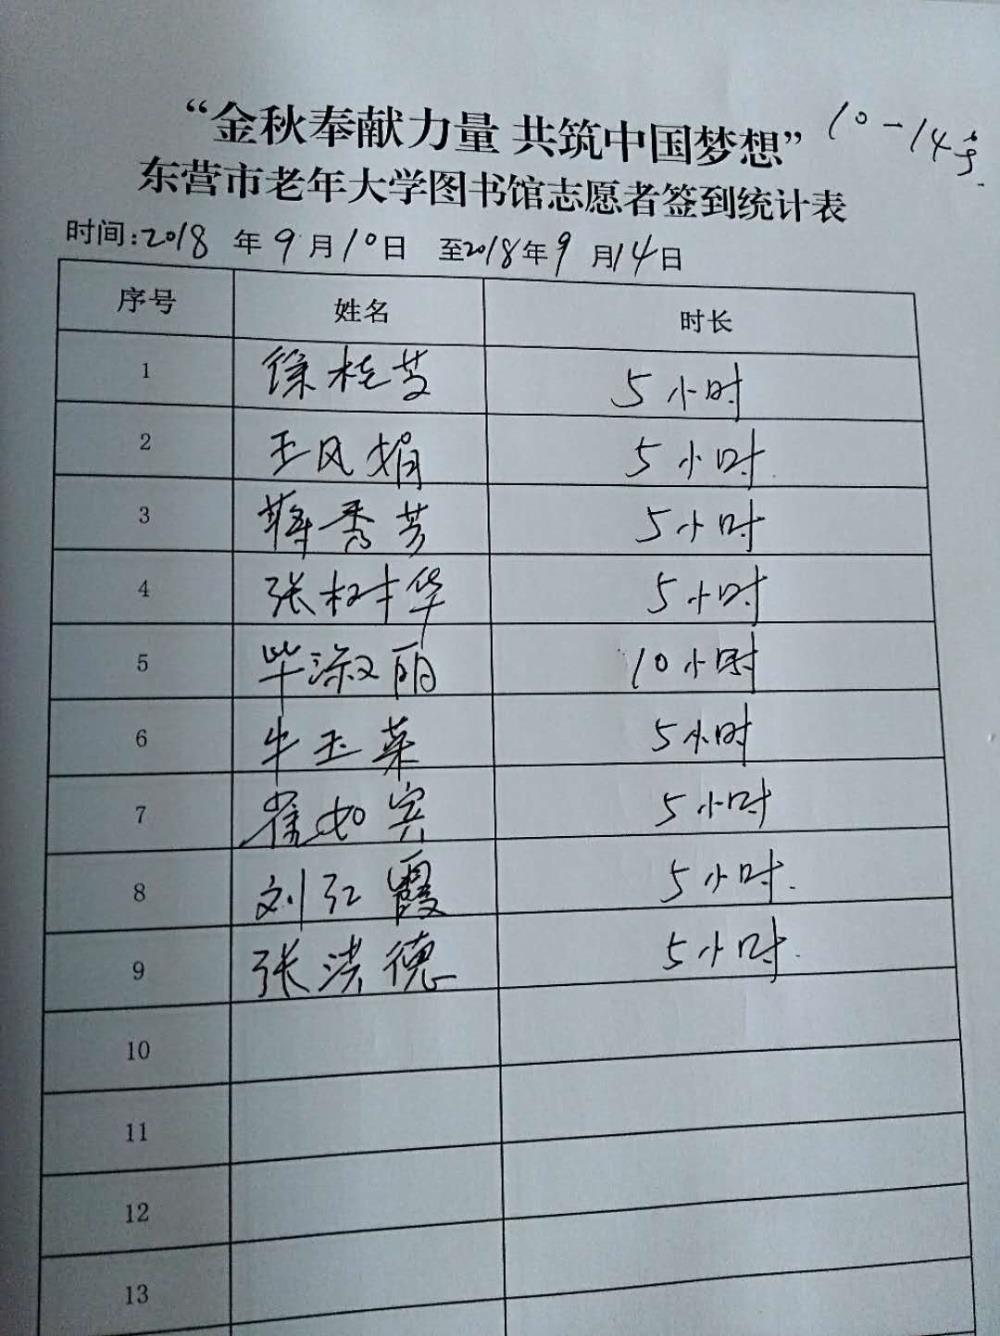 “金秋奉献力量 共筑中国梦想” 10-14号
东营市老年大学图书馆志愿者签到统计表
时间:2018 年 9 月 10 日 至2018年 9 月 14 日
序号 姓名 时长
1 徐桂芬 5小时
2 王凤娟 5小时
3 蒋秀芳 5小时
4 张树华 5小时
5 毕淑丽 10小时
6 牛玉菜 5小时
7 崔如宾 5小时
8 刘红霞 5小时
9 张洪德 5小时
10
11
12
13